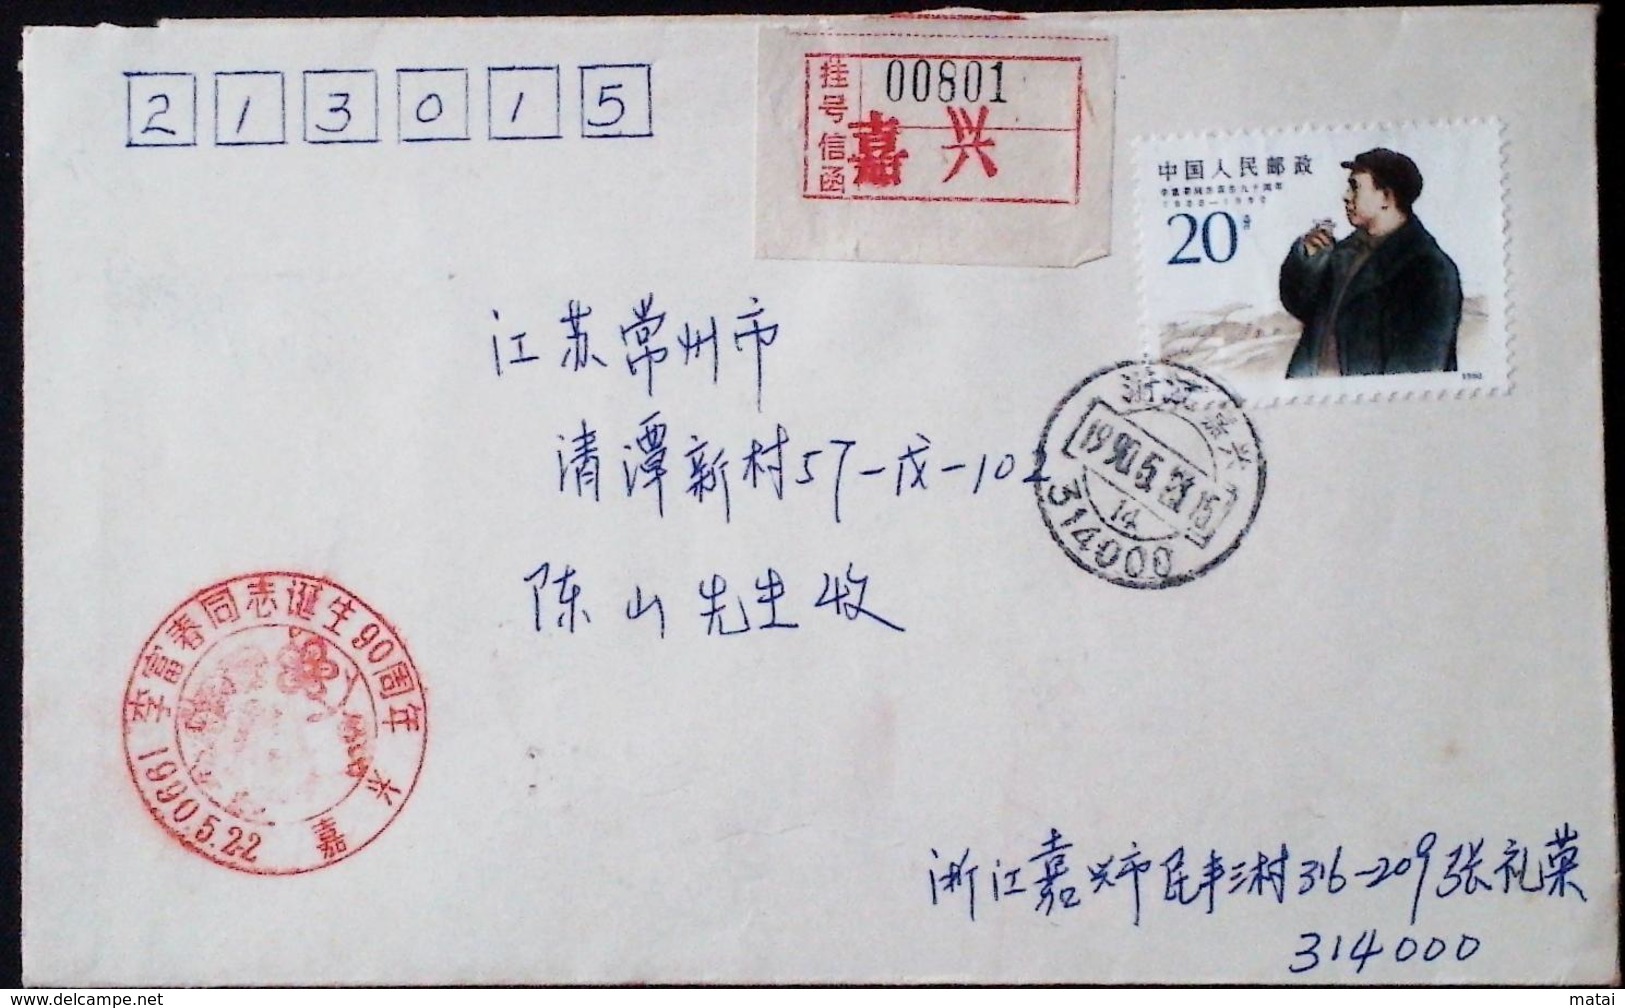 213015
挂号信函
00801
嘉兴
中国人民邮政
李富春同志诞生九十周年
1900—1990
20分
1990
浙江嘉兴
1990.5.23.15
14
314000
江苏常州市
清潭新村57-戊-102
陈山先生收
李富春同志诞生90周年
1990.5.22
嘉兴
浙江嘉兴市民丰三村316-209张礼荣
314000
www.delcampe.net
matai